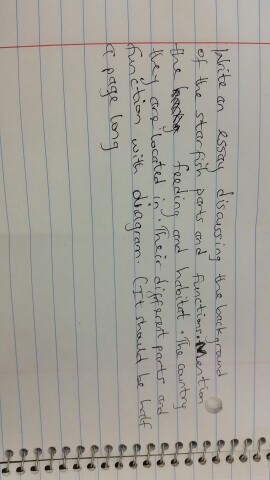 Write an essay discussing the background
of the starfish parts and functions. Mention
the feeding and habitat. The country
they are located in. Their different parts and
function with diagram. (It should be half
a page long